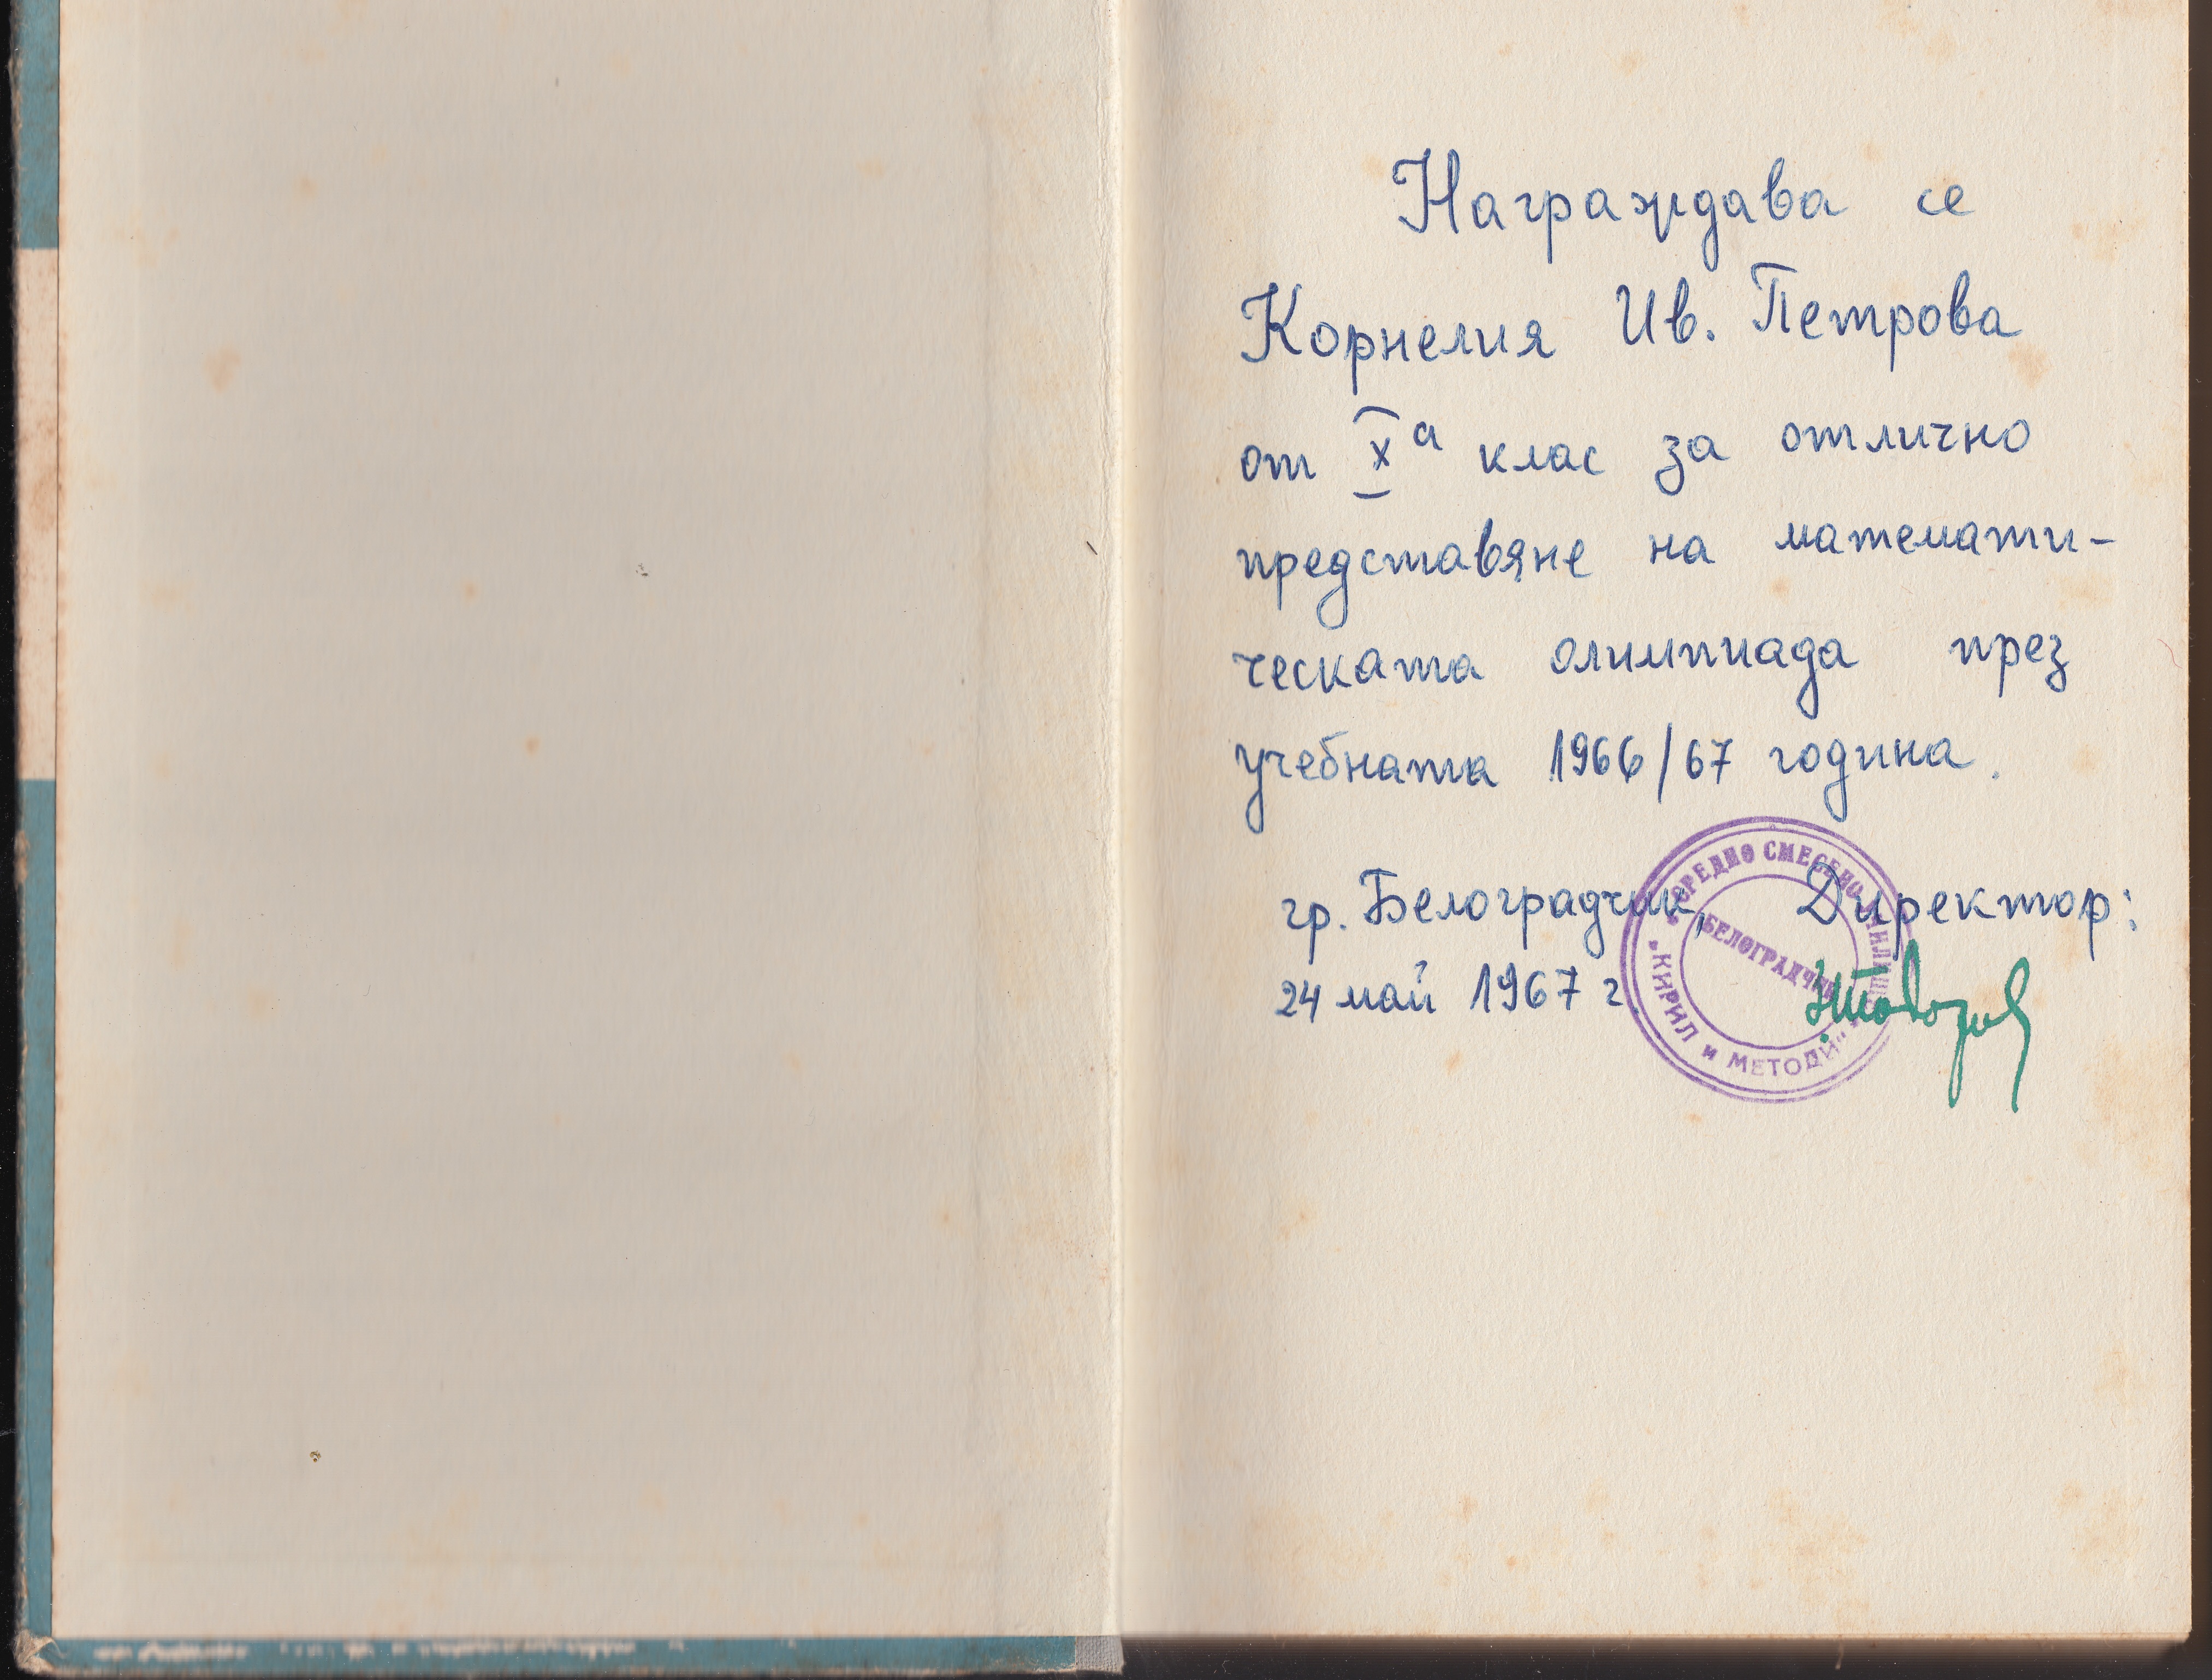 Награждава се
Корнелия Ив. Петрова
от Xª клас за отлично
представяне на математи-
ческата олимпиада през
учебната 1966/67 година.
гр. Белоградчик, Директор:
24 май 1967 г.
СРЕДНО СМЕСЕНО УЧИЛИЩЕ
БЕЛОГРАДЧИК
„КИРИЛ и МЕТОДИЙ“